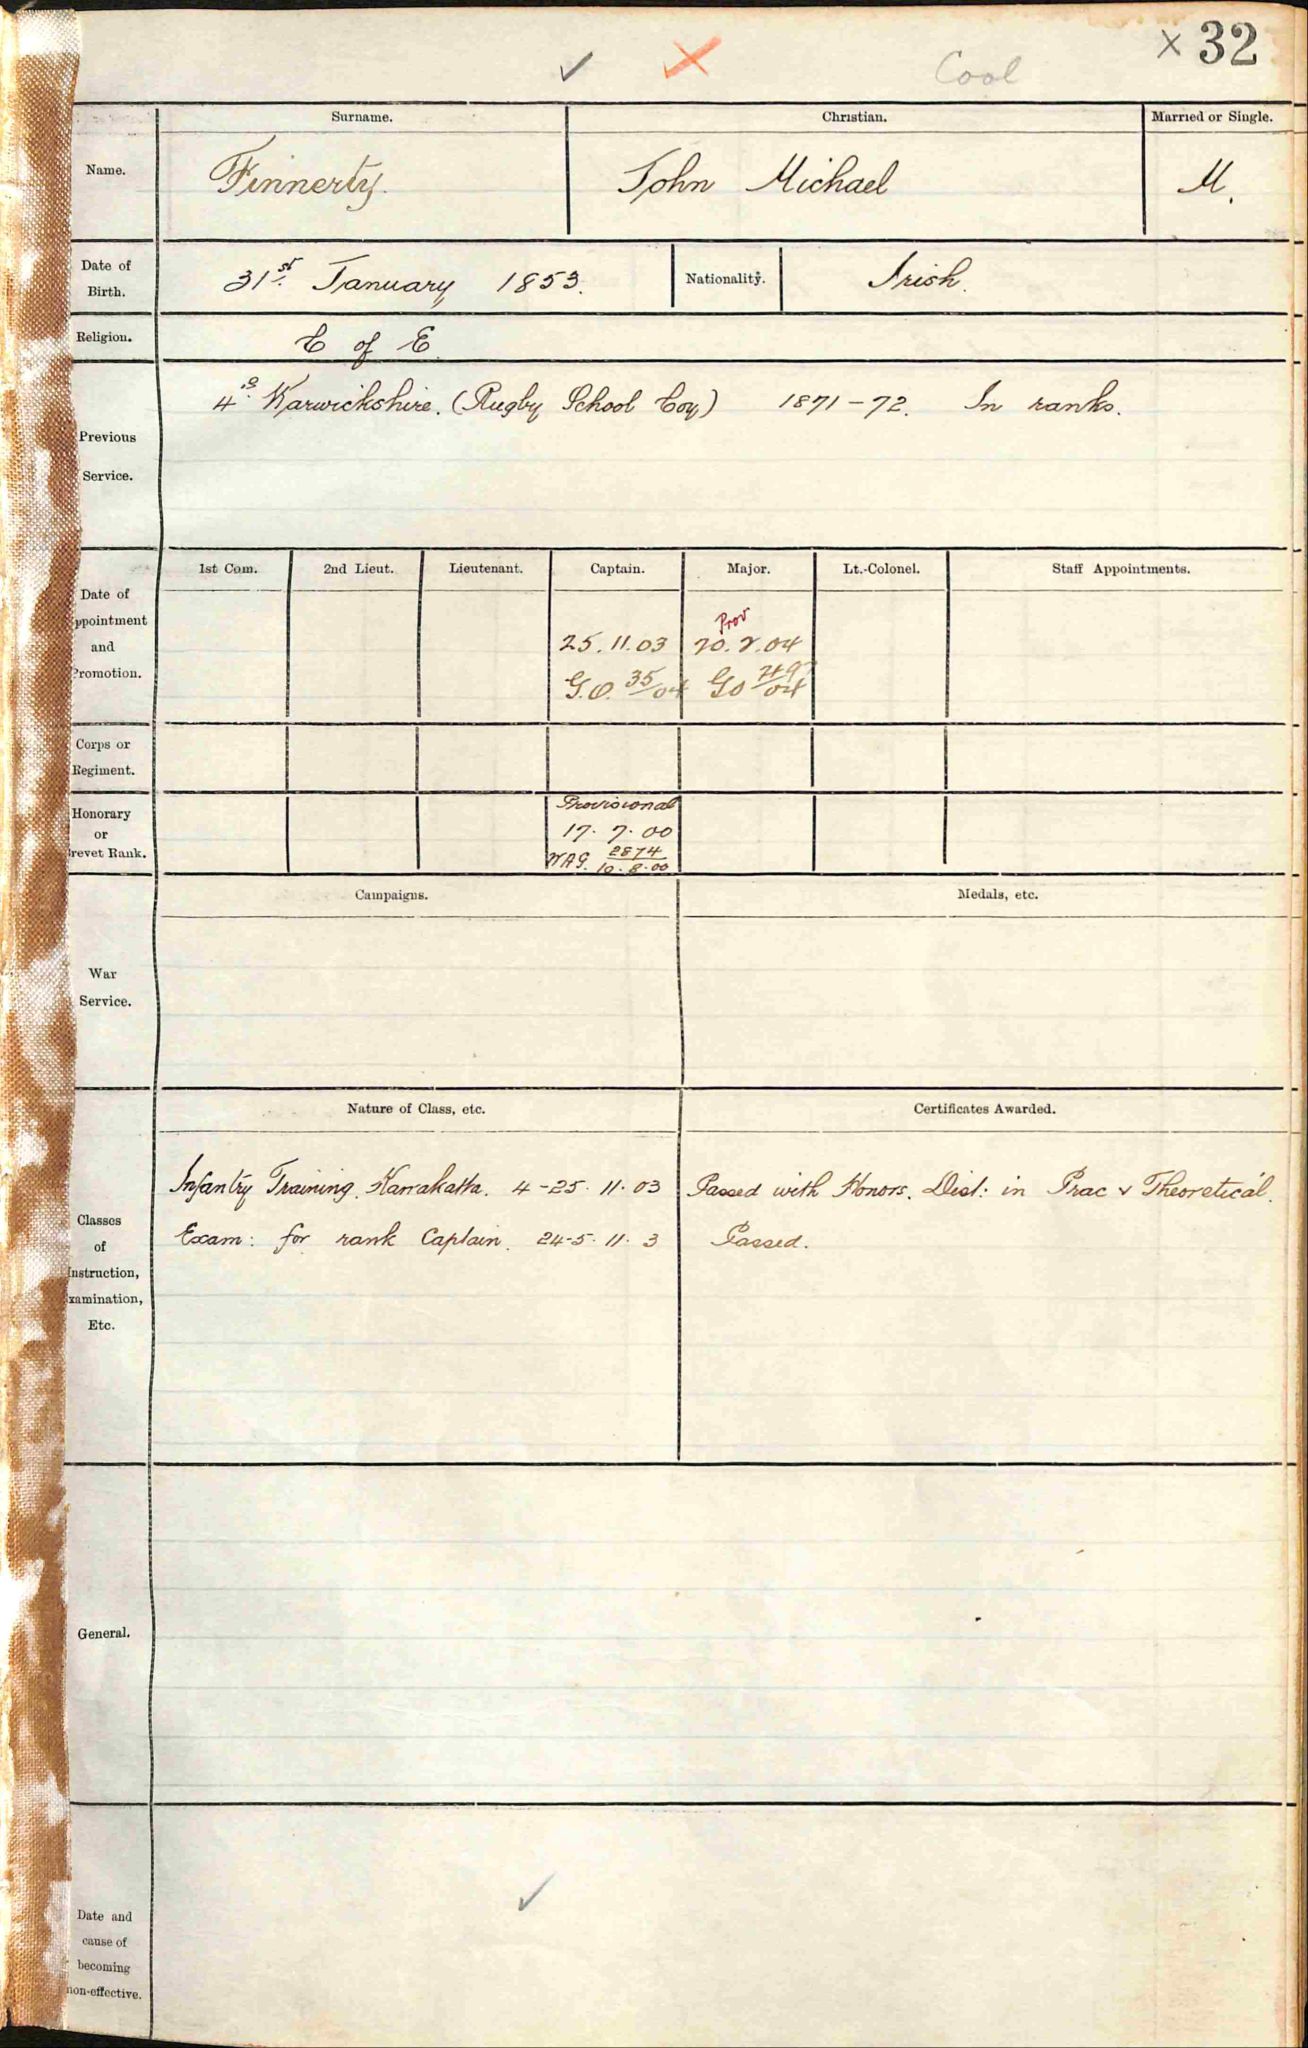 × 32
Cool
Surname. Christian. Married or Single.
Name. Finnerty. John Michael M.
Date of Birth. 31st January 1853. Nationality. Irish.
Religion. C of E
4th Warwickshire. (Rugby School Coy) 1871-72. In ranks.
Previous
Service.
1st Com. 2nd Lieut. Lieutenant. Captain. Major. Lt.-Colonel. Staff Appointments.
Date of
ppointment Prov
and 25.11.03
romotion. G.O. 35/04 GO /04
Corps or
Regiment.
Honorary Provisional
or 17.7.00
revet Rank. WAG. 2874/10.8.00
Campaigns. Medals, etc.
War
Service.
Nature of Class, etc. Certificates Awarded.
Infantry Training. Karrakatta. 4-25.11.03 Passed with Honors. Dist: in Prac & Theoretical.
Exam: for rank Captain. 24-5.11.3 Passed.
Classes
of
nstruction,
xamination,
Etc.
General.
Date and
cause of
becoming
non-effective.